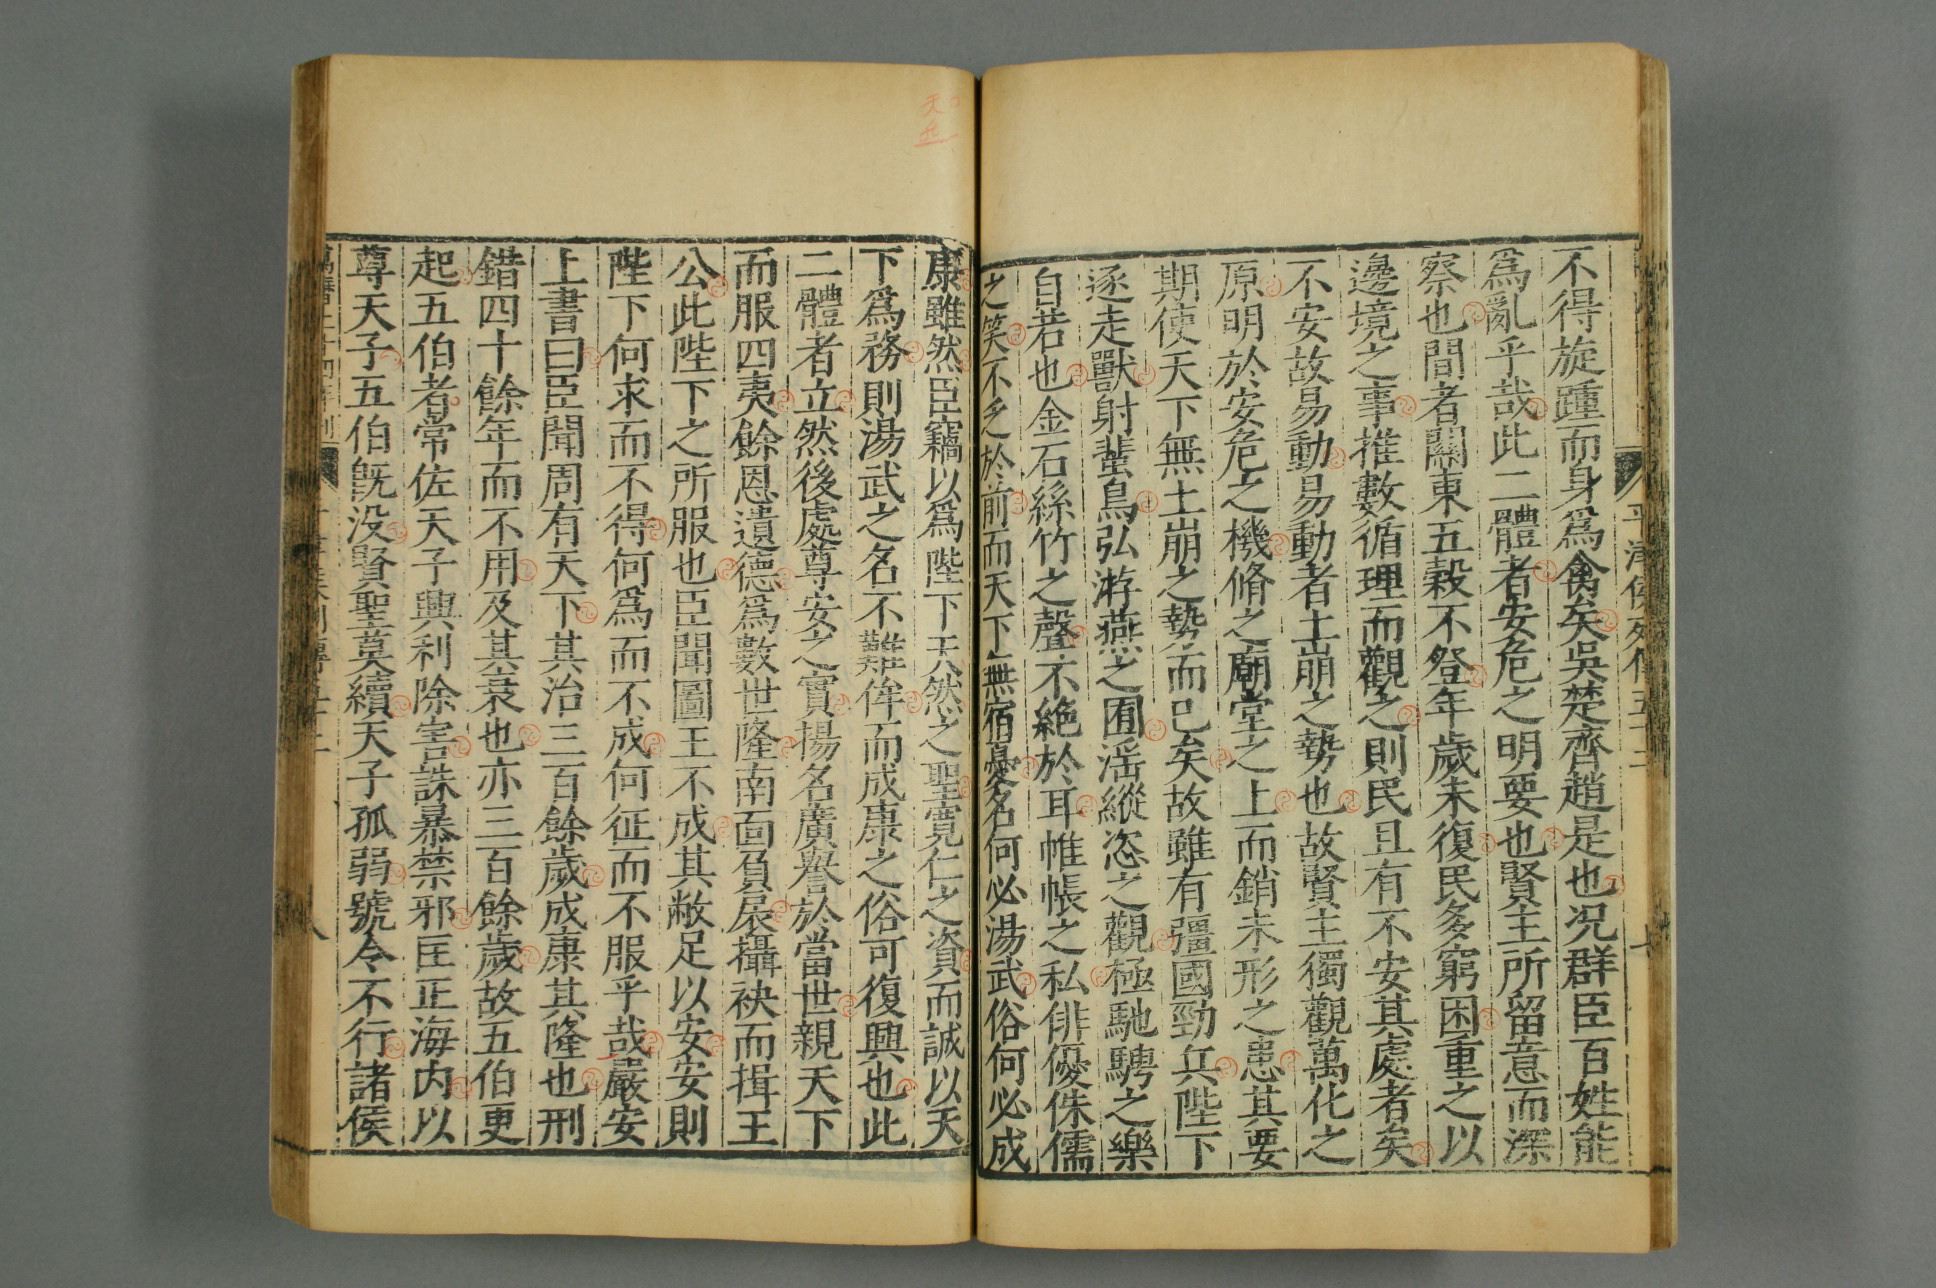 平津侯列傳五十二
七
不得旋踵而身爲禽矣吳楚齊趙是也况群臣百姓能
爲亂乎哉此二體者安危之明要也賢主所留意而深
察也間者關東五穀不登年歲未復民多窮困重之以
邊境之事推數循理而觀之則民且有不安其處者矣
不安故易動易動者土崩之勢也故賢主獨觀萬化之
原明於安危之機脩之廟堂之上而銷未形之患其要
期使天下無土崩之勢而已矣故雖有彊國勁兵陛下
逐走獸射蜚鳥弘游燕之囿淫縱恣之觀極馳騁之樂
自若也金石絲竹之聲不絶於耳帷帳之私俳優侏儒
之笑不乏於前而天下無宿憂名何必湯武俗何必成
康雖然臣竊以爲陛下天然之聖寛仁之資而誠以天
下爲務則湯武之名不難侔而成康之俗可復興也此
二體者立然後處尊安之實揚名廣譽於當世親天下
而服四夷餘恩遺德爲數世隆南面負扆攝袂而揖王
公此陛下之所服也臣聞圖王不成其敝足以安安則
陛下何求而不得何爲而不成何征而不服乎哉嚴安
上書曰臣聞周有天下其治三百餘歲成康其隆也刑
錯四十餘年而不用及其衰也亦三百餘歲故五伯更
起五伯者常佐天子興利除害誅暴禁邪匡正海内以
尊天子五伯旣没賢聖莫續天子孤弱號令不行諸侯
八